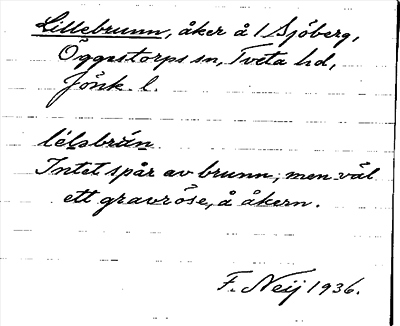 Lillebrunn, åker å 1 Sjöberg,
Öggestorps sn, Tveta hd,
Jönk. l.
Intet spår av brunn; men väl
ett gravröse, å åkern.
F. Neij 1936.